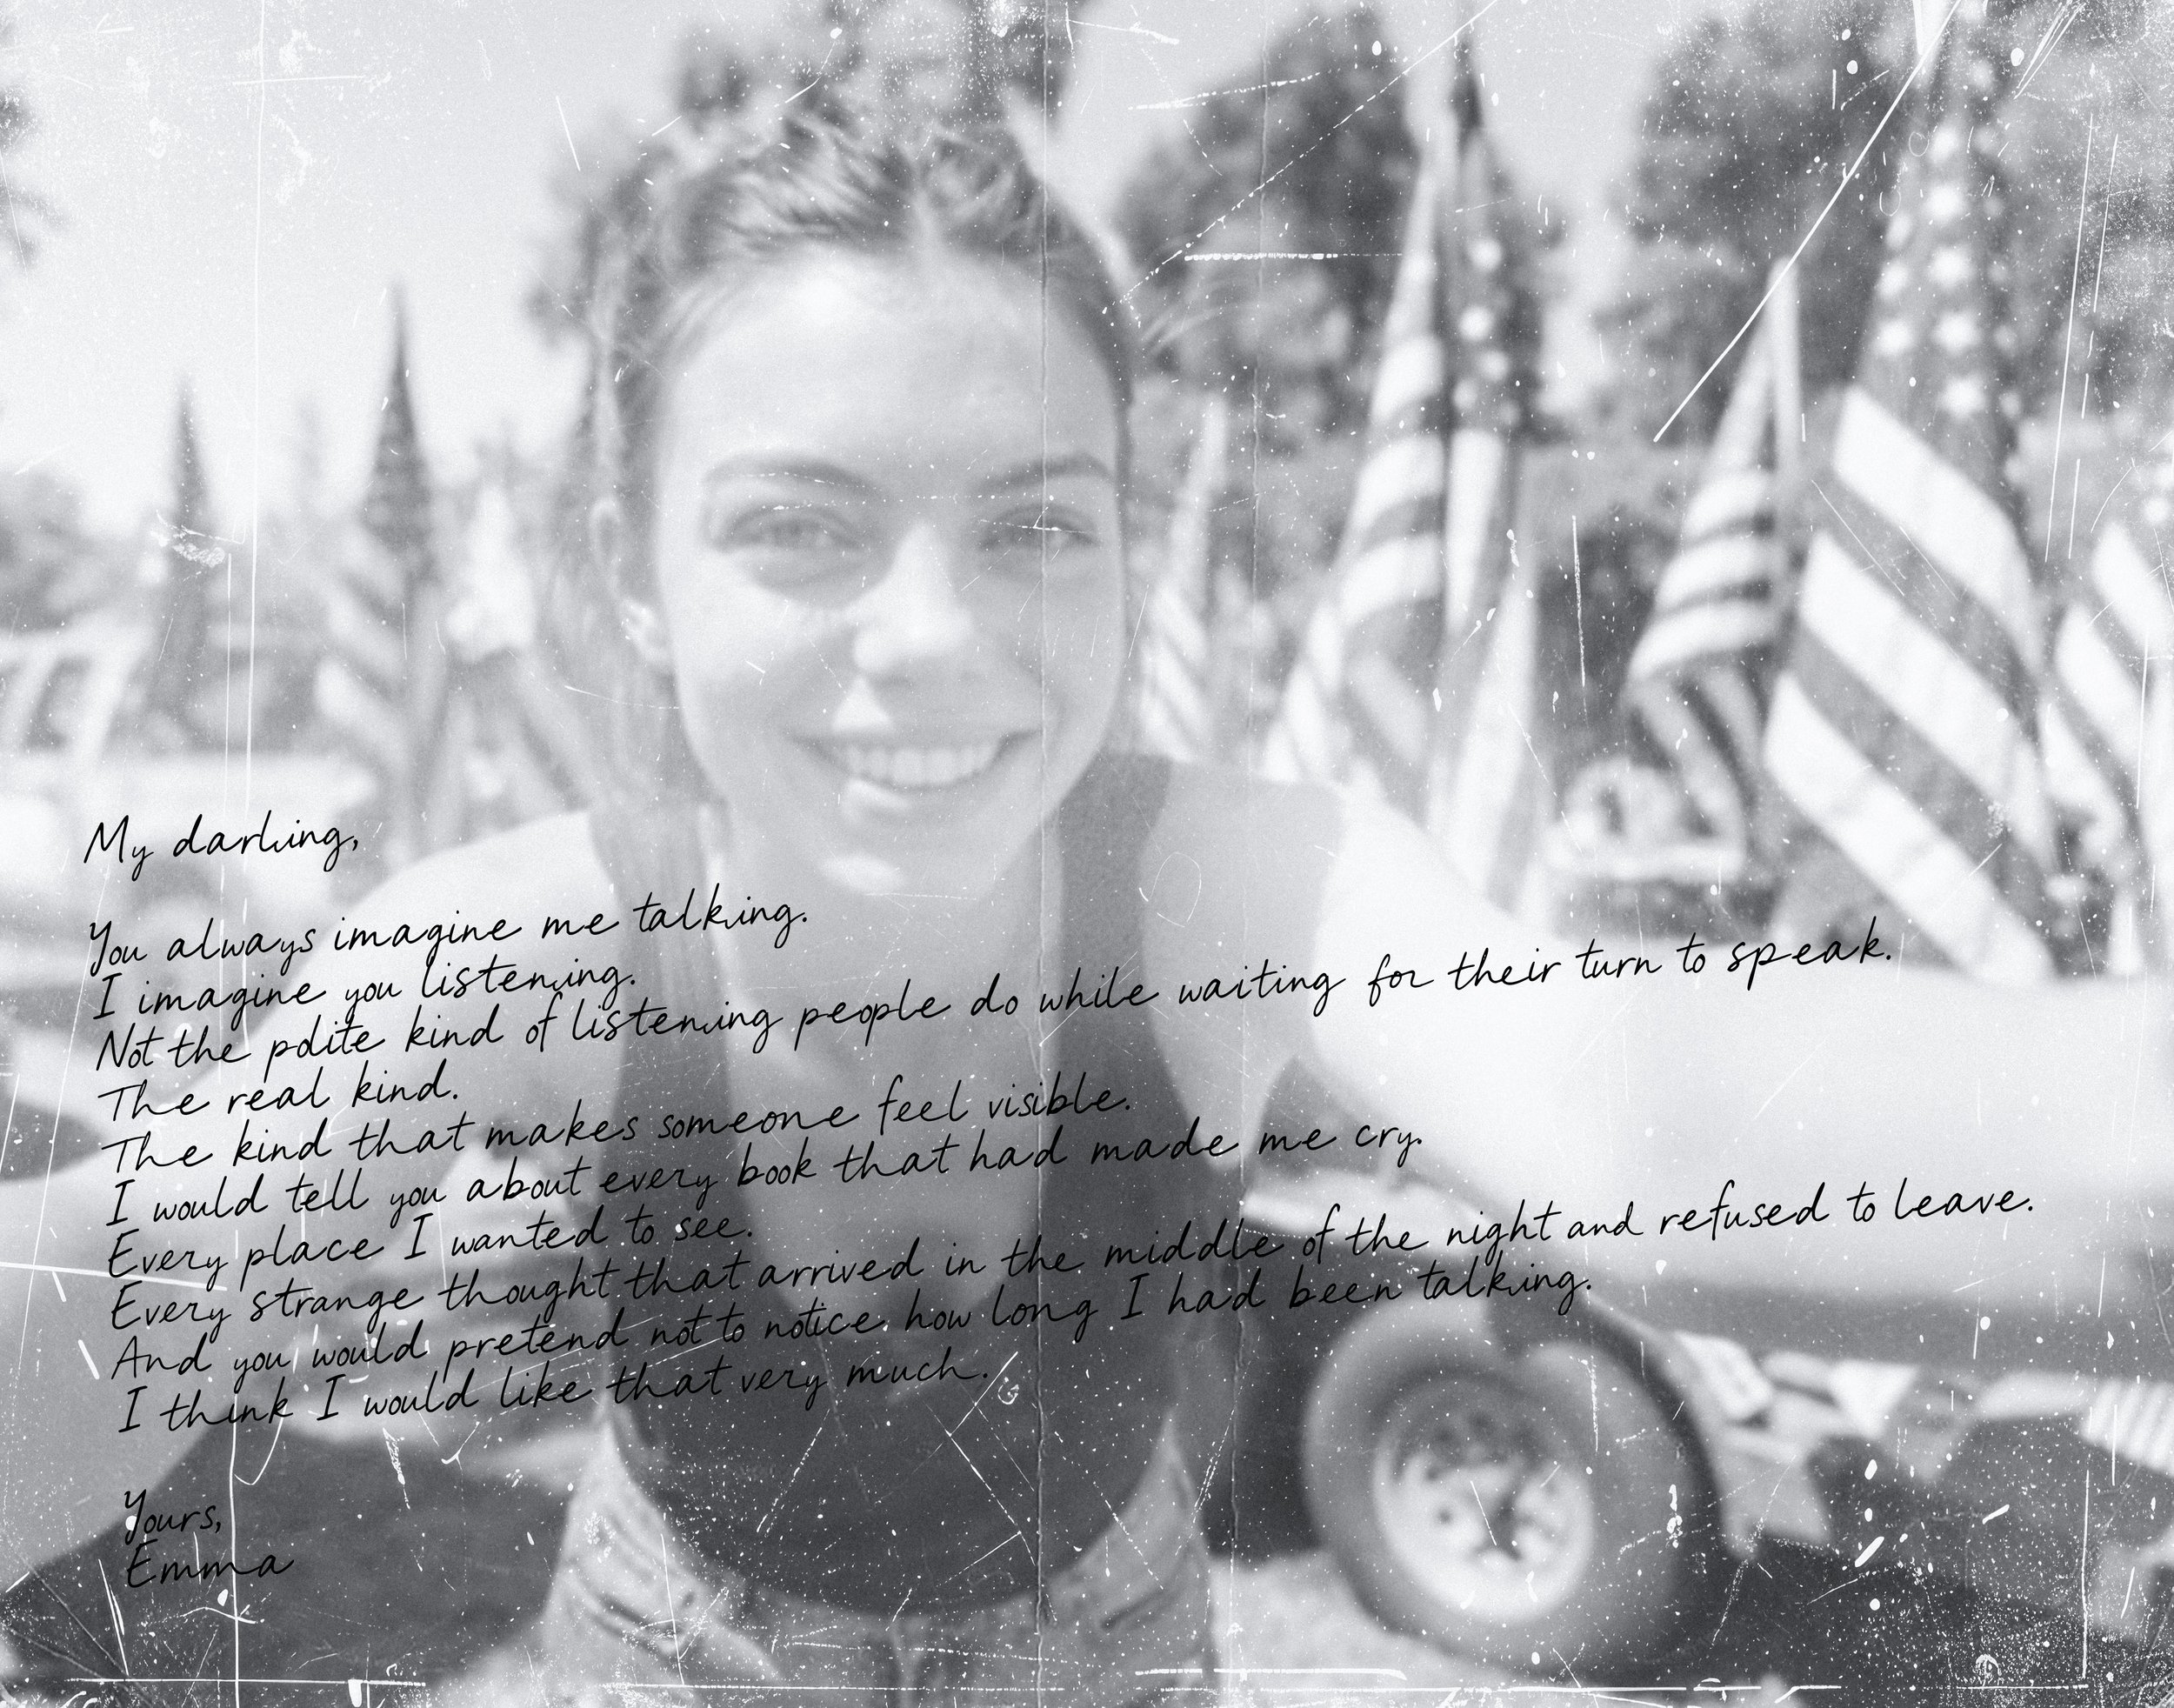 My darling,
You always imagine me talking.
I imagine you listening.
Not the polite kind of listening people do while waiting for their turn to speak.
The real kind.
The kind that makes someone feel visible.
I would tell you about every book that had made me cry.
Every place I wanted to see.
Every strange thought that arrived in the middle of the night and refused to leave.
And you would pretend not to notice how long I had been talking.
I think I would like that very much.
Yours,
Emma